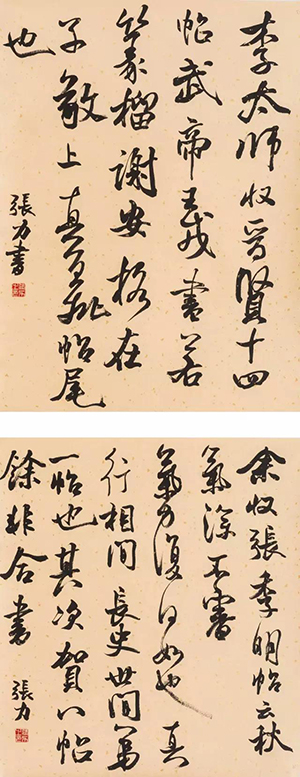 李太師收晉賢十四
帖武帝王戎書若
篆籀謝安格在
子敬上真宜批帖尾
也
張力書
余收張季明帖云秋
氣深不審
氣力復何如也真
行相間長史世間第
一帖也其次賀八帖
餘非合書
張力